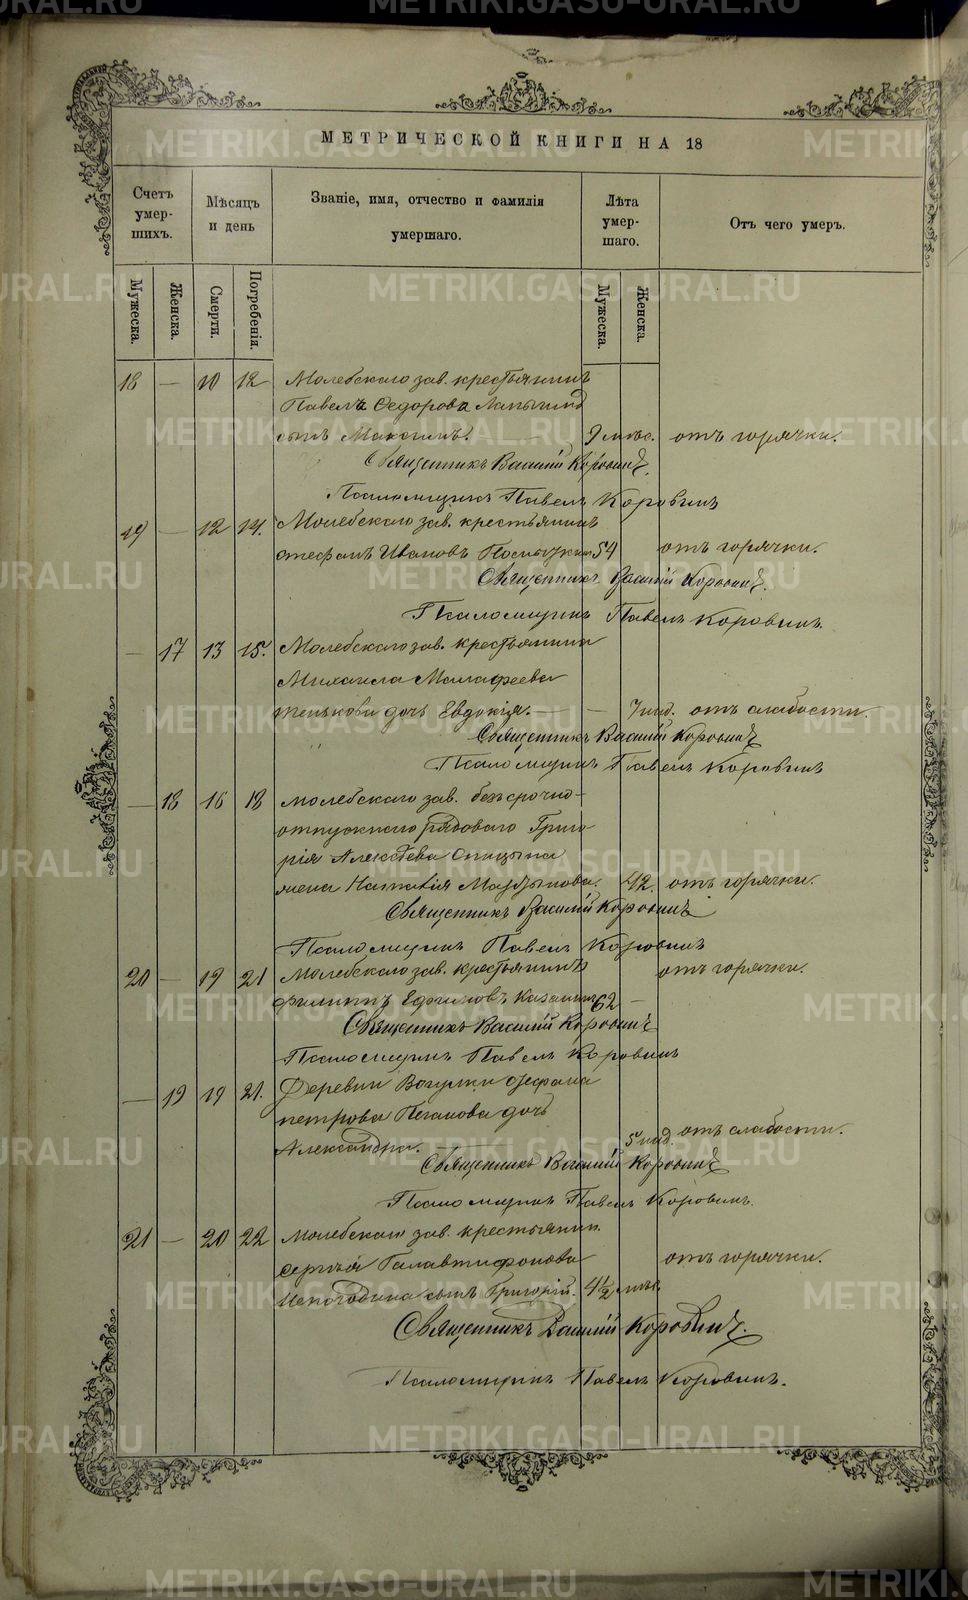 МЕТРИЧЕСКОЙ КНИГИ НА 18
Счетъ умер- шихъ.
Мѣсяцъ и день
Званіе, имя, отчество и фамилія умершаго.
Лѣта умер- шаго.
Отъ чего умеръ.
Мужеска.
Женска.
Смерти.
Погребенія.
Мужеска.
Женска.
18 — 10 12 Молебскаго зав. крестьянинъ
Павелъ Ѳедорова
сынъ Максимъ. 9 мѣс. отъ горячки.
Священникъ Василій Коровинъ.
Псаломщикъ Павелъ Коровинъ
19 — 12 14. Молебскаго зав. крестьянинъ
Стефанъ Ивановъ 54 отъ горячки.
Священникъ Василій Коровинъ.
Псаломщикъ Павелъ Коровинъ.
— 17 13 15. Молебскаго зав. крестьянина
Михаила Малафеева
дочь Евдокія. — — 7 нед. отъ слабости.
Священникъ Василій Коровинъ
Псаломщикъ Павелъ Коровинъ
— 18 16 18 Молебскаго зав. безсрочно-
отпускнаго рядоваго Григо
рія Алексѣева Спицына
жена Наталія Мартынова. 42. отъ горячки.
Священникъ Василій Коровинъ
Псаломщикъ Павелъ Коровинъ
20 — 19 21 Молебскаго зав. крестьянинъ отъ горячки.
Филиппъ Ефимовъ 62 —
Священникъ Василій Коровинъ
Псаломщикъ Павелъ Коровинъ
— 19 19 21. Деревни Вогулки Стефана
Петрова дочь
Александра. — 5 нед. отъ слабости.
Священникъ Василій Коровинъ
Псаломщикъ Павелъ Коровинъ.
21 — 20 22 Молебскаго зав. крестьянин.
Сергѣя Галактионова отъ горячки.
сынъ Григорій. 4½ мѣс.
Священникъ Василій Коровинъ.
Псаломщикъ Павелъ Коровинъ.
METRIKI.GASO-URAL.RU